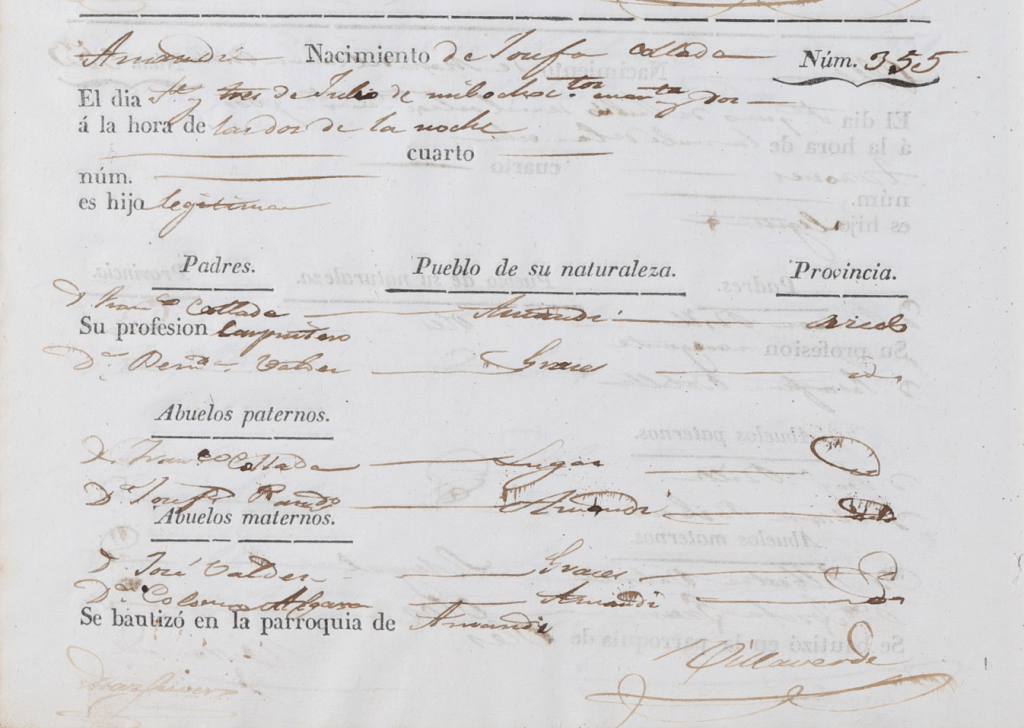 Amandi Nacimiento de Josefa Collada Núm. 355
El dia y tres de Julio de mil ochoc.tos cuarenta y dos
á la hora de las dos de la noche
cuarto
núm.
es hijo legitima
Padres. Pueblo de su naturaleza. Provincia.
D. Fran.co Collada Amandi Oviedo
Su profesion Carpintero
D.a Valdes Graces
Abuelos paternos.
D. Fran.co Collada Lugar
D.a Josefa Amandi
Abuelos maternos.
D. José Valdes Graces
D.a Amandi
Se bautizó en la parroquia de Amandi
Villaverde